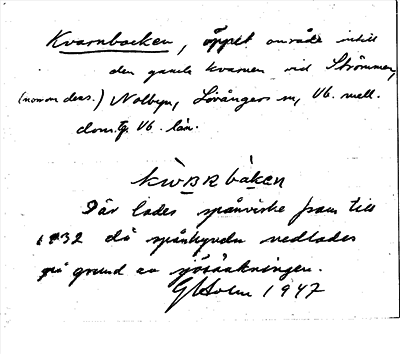 Kvarnbacken, öppet område intill
den gamla kvarnen vid Strömmen,
(norr om dens.) Nolbyn, Lövångers sn, Vb. mell.
doms. Vb. län.
Där lades spånvirke fram till
1932 då spånhyveln nedlades
på grund av
G Holm 1947